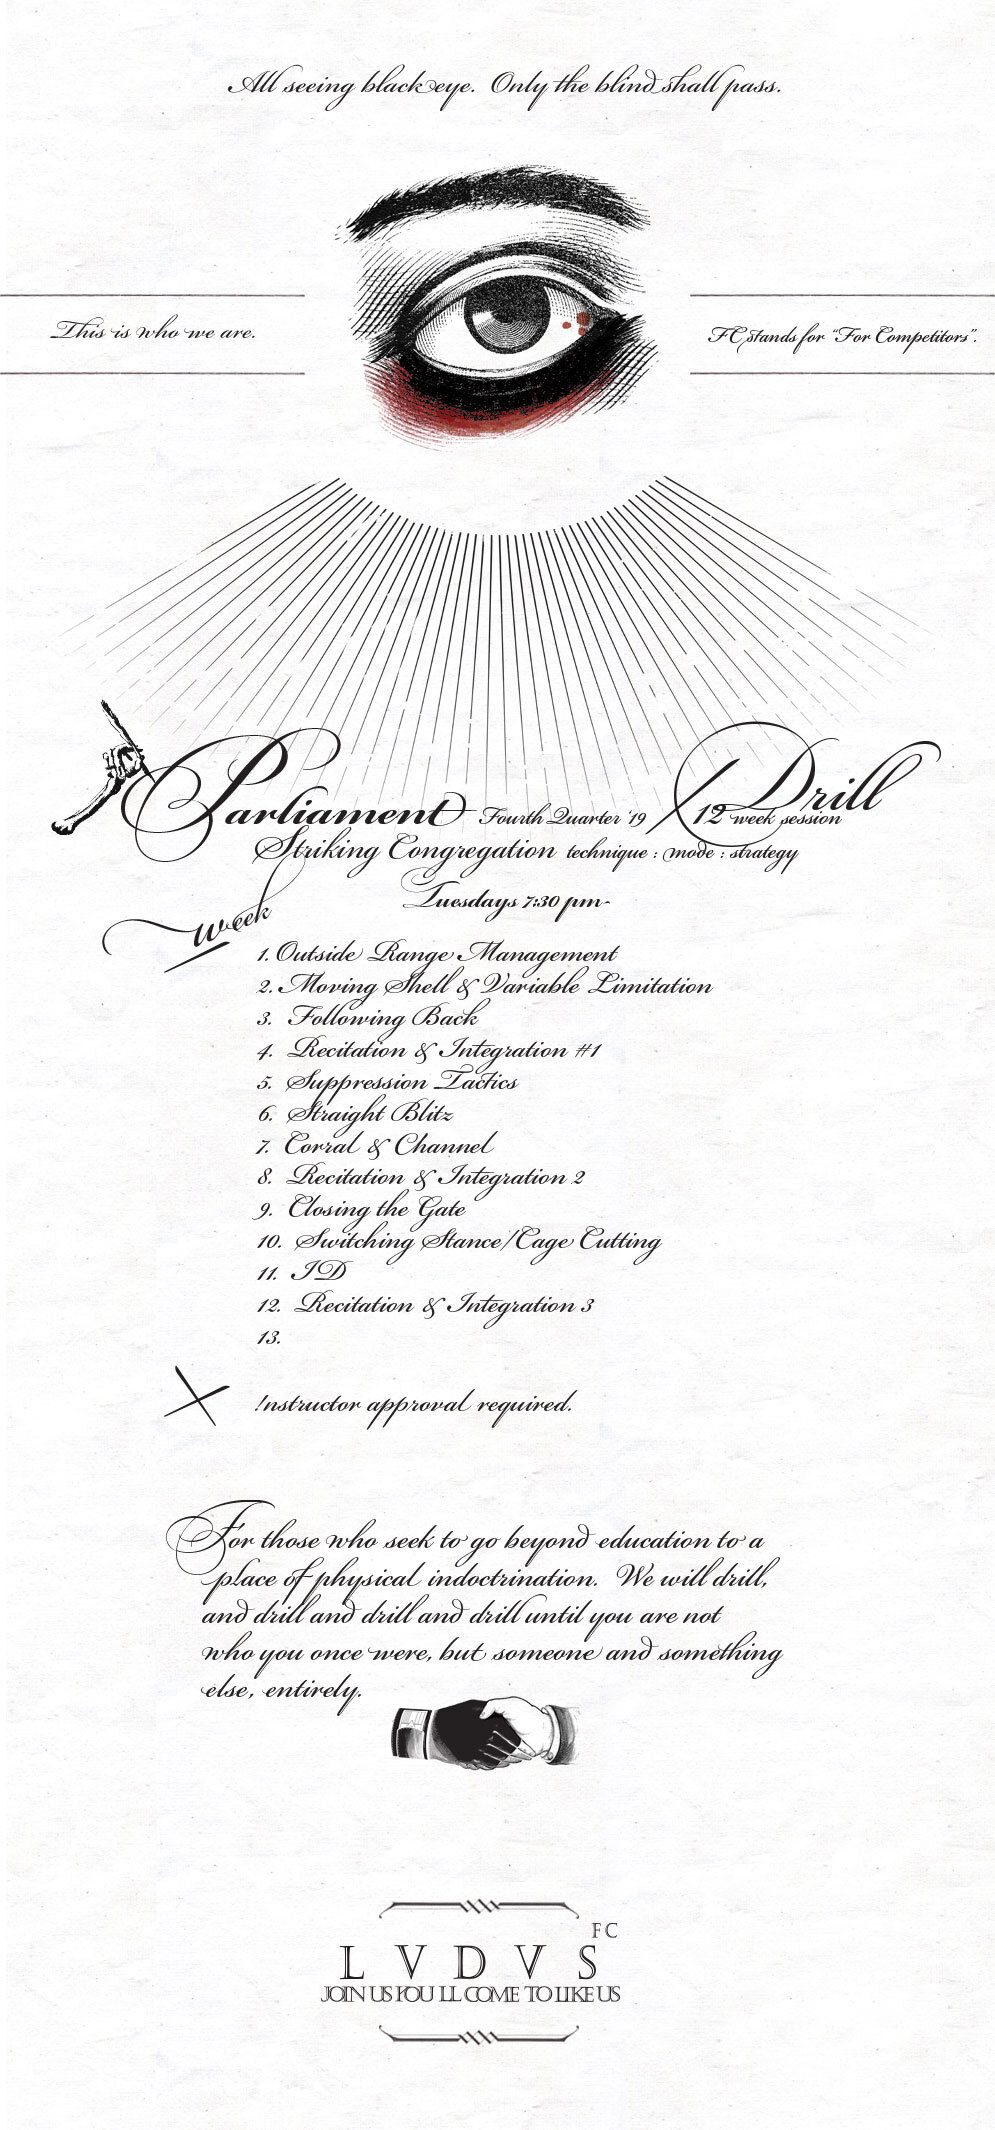 All seeing black eye. Only the blind shall pass.
This is who we are.
FC stands for "For Competitors".
Parliament Fourth Quarter '19 / Drill
12 week session
Striking Congregation technique : mode : strategy
Tuesdays 7:30 pm-
Week
1. Outside Range Management
2. Moving Shell & Variable Limitation
3. Following Back
4. Recitation & Integration #1
5. Suppression Tactics
6. Straight Blitz
7. Corral & Channel
8. Recitation & Integration 2
9. Closing the Gate
10. Switching Stance/Cage Cutting
11. ID
12. Recitation & Integration 3
13.
Instructor approval required.
For those who seek to go beyond education to a
place of physical indoctrination. We will drill,
and drill and drill and drill until you are not
who you once were, but someone and something
else, entirely.
FC
LVDVS
JOIN US YOU LL COME TO LIKE US